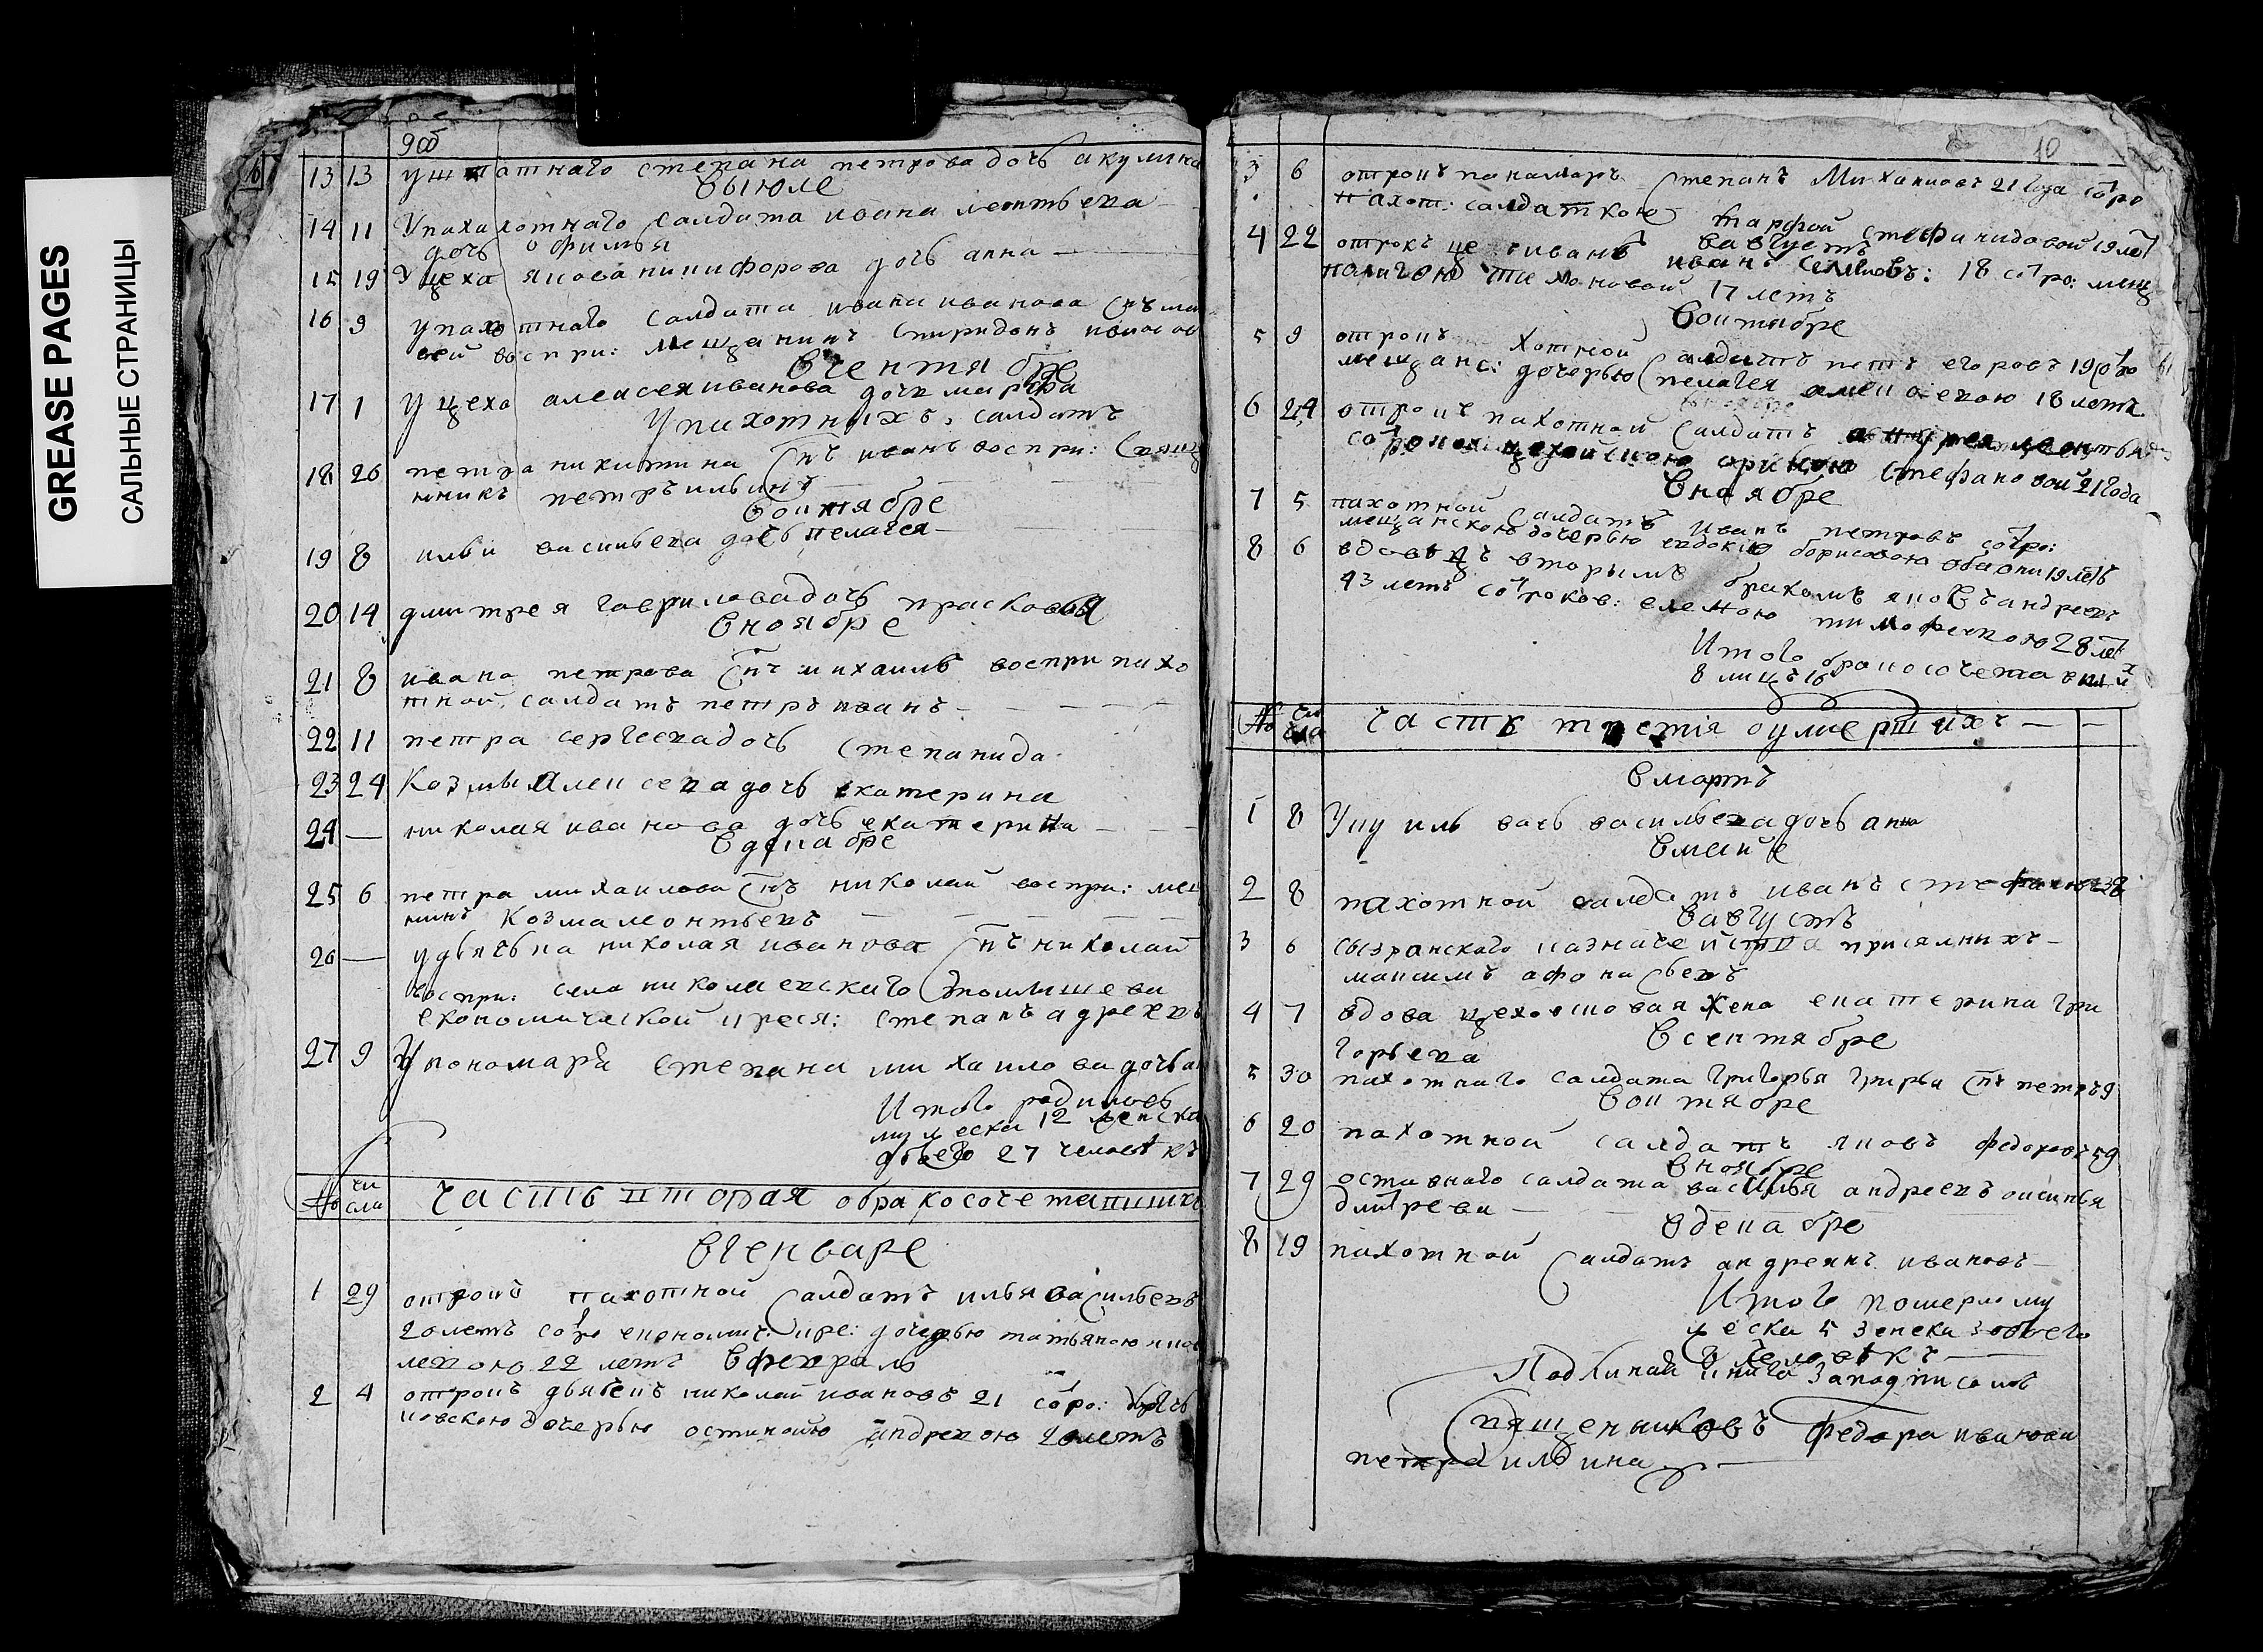 GREASE PAGES
САЛЬНЫЕ СТРАНИЦЫ
9об
13 13 У штатнаго степана петрова дочь акулина
Выюле
14 11 Упахахотнаго салдата ивана леонтьева
дочь офимья
15 19 У цеха якова никифорова дочь анна
16 9 упахотнаго салдата ивана иванова снъ
воспри: мещанинъ спиридонъ
Всентябре
17 1 У цеха алексея иванова дочь марфа
Упахотныхъ салдатъ
18 26 петра никитина снъ иванъ воспри: свящ
нникъ петръ ильинъ
Воктябре
19 8 ильи васильева дочь пелагея
20 14 дмитрея гаврилова дочь прасковья
Вноябре
21 8 ивана петрова снъ михаилъ воспри пахо
тной салдатъ петръ иванъ
22 11 петра сергеева дочь степанида
23 24 Козмы алексеева дочь екатерина
24 — николая иванова дочь екатерина
Вдекабре
25 6 петра михаилова снъ николай воспри: мещ
нинъ козма леонтьевъ
26 — удьячка николая иванова снъ николай
воспри: села николаевскаго
економической кресья: степанъ адреевъ
27 9 Упономаря степана михаилова дочь
Итого родилось
мужеска 12 женска
обоего 27 человекъ
№ числа Часть вторая обракосочетавшихся
Вгенваре
1 29 отрокъ пахотной салдатъ илья васильевъ
20 летъ сотро економич: кре: дочерью татьяною яков
левою 22 летъ Вфеврале
2 4 отрокъ дьячекъ николай ивановъ 21 сотро: дьяч
ковскою дочерью устиньею андреевою 20 летъ
10
3 6 отрокъ панамарь Степанъ Михаиловъ 21 года сотро
пахот: салдаткою марфой стефанидовой 19 лет
Вавгусте
4 22 отрокъ иванъ семеновъ: 18 сотро: мещ
тимоновой 17 летъ
Воктябре
5 9 отрокъ хотной салдатъ петръ егоровъ 19 сотро
мещанс: дочерью пелагея алексеевою 18 летъ
6 24 отрокъ пахотной салдатъ
сотроков цеховскою ариною стефановой 21 года
Вноябре
7 5 пахотной салдатъ иванъ петровъ сотро:
мещанскою дочерью евдокию борисовою оба они 19 летъ
8 6 вдовецъ вторымъ бракомъ яковъ андреевъ
43 летъ сотроков: еленою тимофеевою 28 лет
Итого бракосочетавших
8 лицъ 16
№ числа часть третiя оумерших
Вмарте
1 8 Уку васъ васильева дочь анна
Вмайе
2 8 пахотной салдатъ иванъ стефановъ 38
Вавгусте
3 6 сызранскаго казначейства присяжникъ
максимъ афонасьевъ
4 7 вдова цеховшовая жена екатерина гри
горьева
Всентябре
5 30 пахотнаго салдата григорья григорьева снъ петръ 9
Воктябре
6 20 пахотной салдатъ яковъ федоровъ 59
Вноябре
7 29 оставного салдата василья андреевъ
дмитрева
Вдекабре
8 19 пахотной салдатъ андреянъ ивановъ
Итого померло му
жеска 5 женска 3 обоего
8 человекъ
Подлиная книга заподписомъ
священниковъ федора иванова
петра ильина